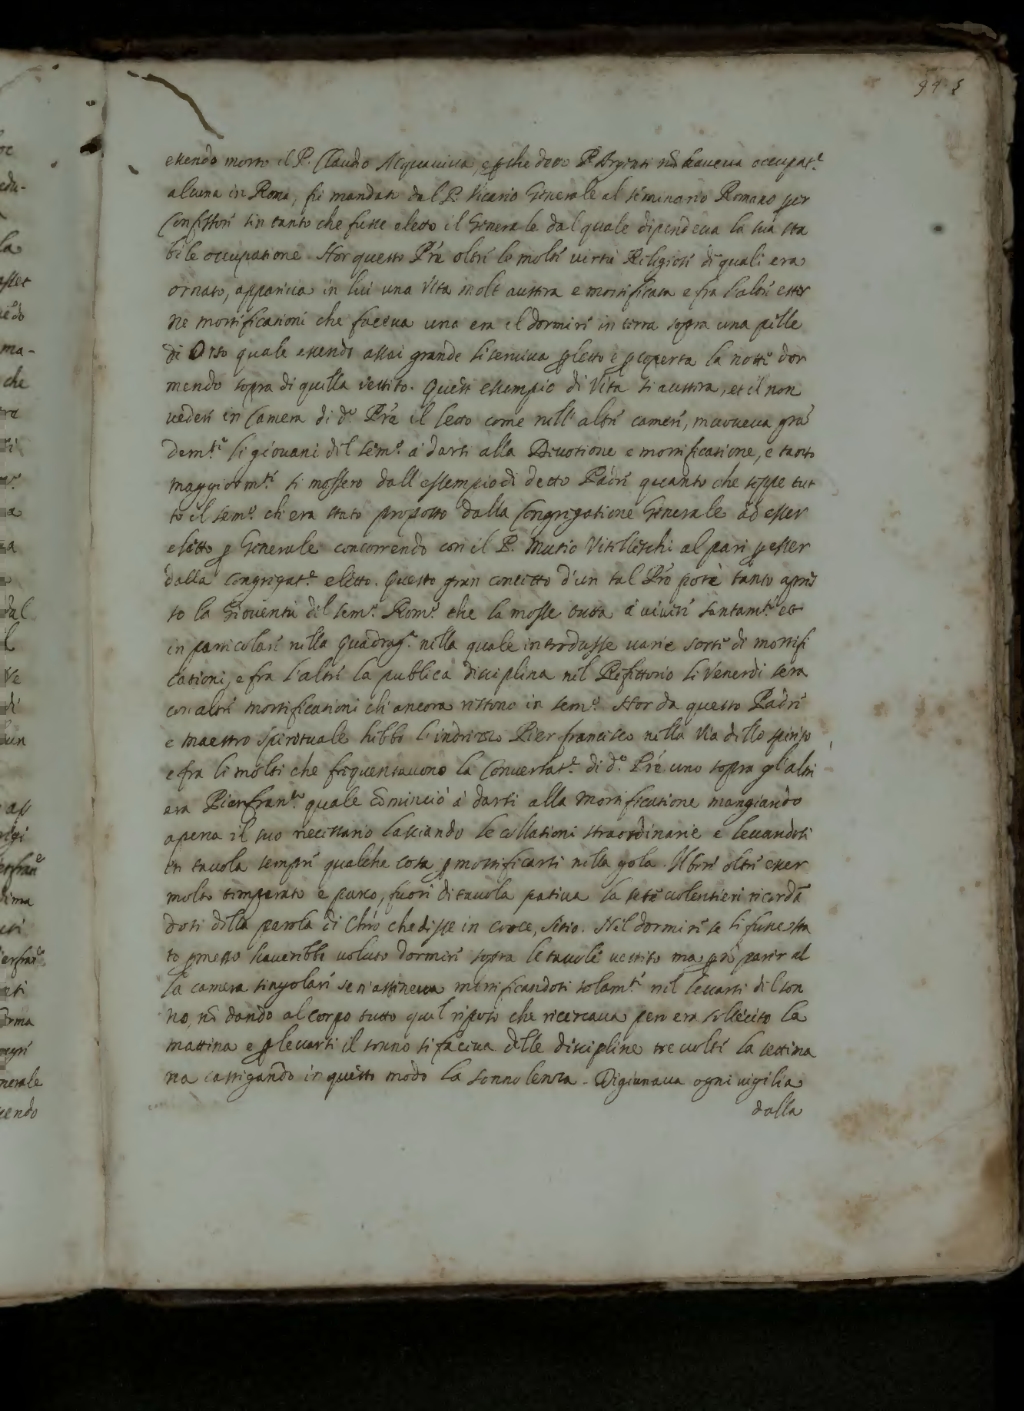 94 5
essendo morto il P. Claudio Acquaviva, e perche detto P. nõ haveva occupat.e
alcuna in Roma, fù mandato dal P. Vicario Generale al seminario Romano per
Confessore sin tanto che fusse eletto il Generale dal quale dipendeva la sua sta
bile occupatione. Hor questo Pre oltre le molte virtù Religiose di quali era
ornato, appariva in lui una vita molt austera e mortificata e fra l'altre ester
ne mortificationi che faceva una era el dormire in terra sopra una pelle
di Orso quale essendo assai grande li serviva p letto e p coperta la notte dor
mendo sopra di quella vestito. Questo essempio di Vita si austera, et il non
vedere in Camera di d.o Pre il letto come nell'altre camere, moveva grã
dem.te li giovani del sem.o a darsi alla Divotione e mortificatione, e tanto
maggiorm.te si mossero dall'essempio di detto Padre quanto che seppe tut
to il sem.o ch'era stato proposto dalla Congregatione Generale ad esser
eletto p Generale concorrendo con il P. Mutio Vitelleschi al pari p esser
dalla Congregat.e eletto. Questo gran concetto d'un tal Pre potè tanto apres
so la Gioventù del sem.o Rom.o che la mosse tutta a vivere santam.te et
in particolare nella Quadrag.a nella quale introdusse varie sorti di mortifi
cationi, e fra l'altre la publica disciplina nel Refettorio li Venerdi sera
con altre mortificationi ch'ancora restono in sem.o Hor da questo Padre
e maestro spirituale hebbe l'indrizzo Pierfrancesco nella via dello spirito
e fra li molti che frequentavono la Conversat.e di d.o Pre uno sopra gl'altri
era Pierfran.co quale cõminciò a darsi alla mortificatione mangiando
apena il suo necessario lasciando le collationi straordinarie e levandosi
in tavola sempre qualche cosa p mortificarsi nella gola. oltre esser
molto temperato e parco, fuori di tavola pativa la sete volentieri ricordã
dosi della parola di Chro che disse in croce, sitio. Nel dormire se li fusse sta
to pmesso haverebbe voluto dormire sopra le tavole vestito ma p nõ parer al
la camera singolare se n'asteneva mortificandosi solam.te nel levarsi del son
no, nõ dando al corpo tutto quel riposo che ricercava pero era sollecito la
mattina e p levarsi il sonno si faceva delle discipline tre volte la settima
na castigando in questo modo la sonnolenza. Digiunava ogni vigilia
dalla